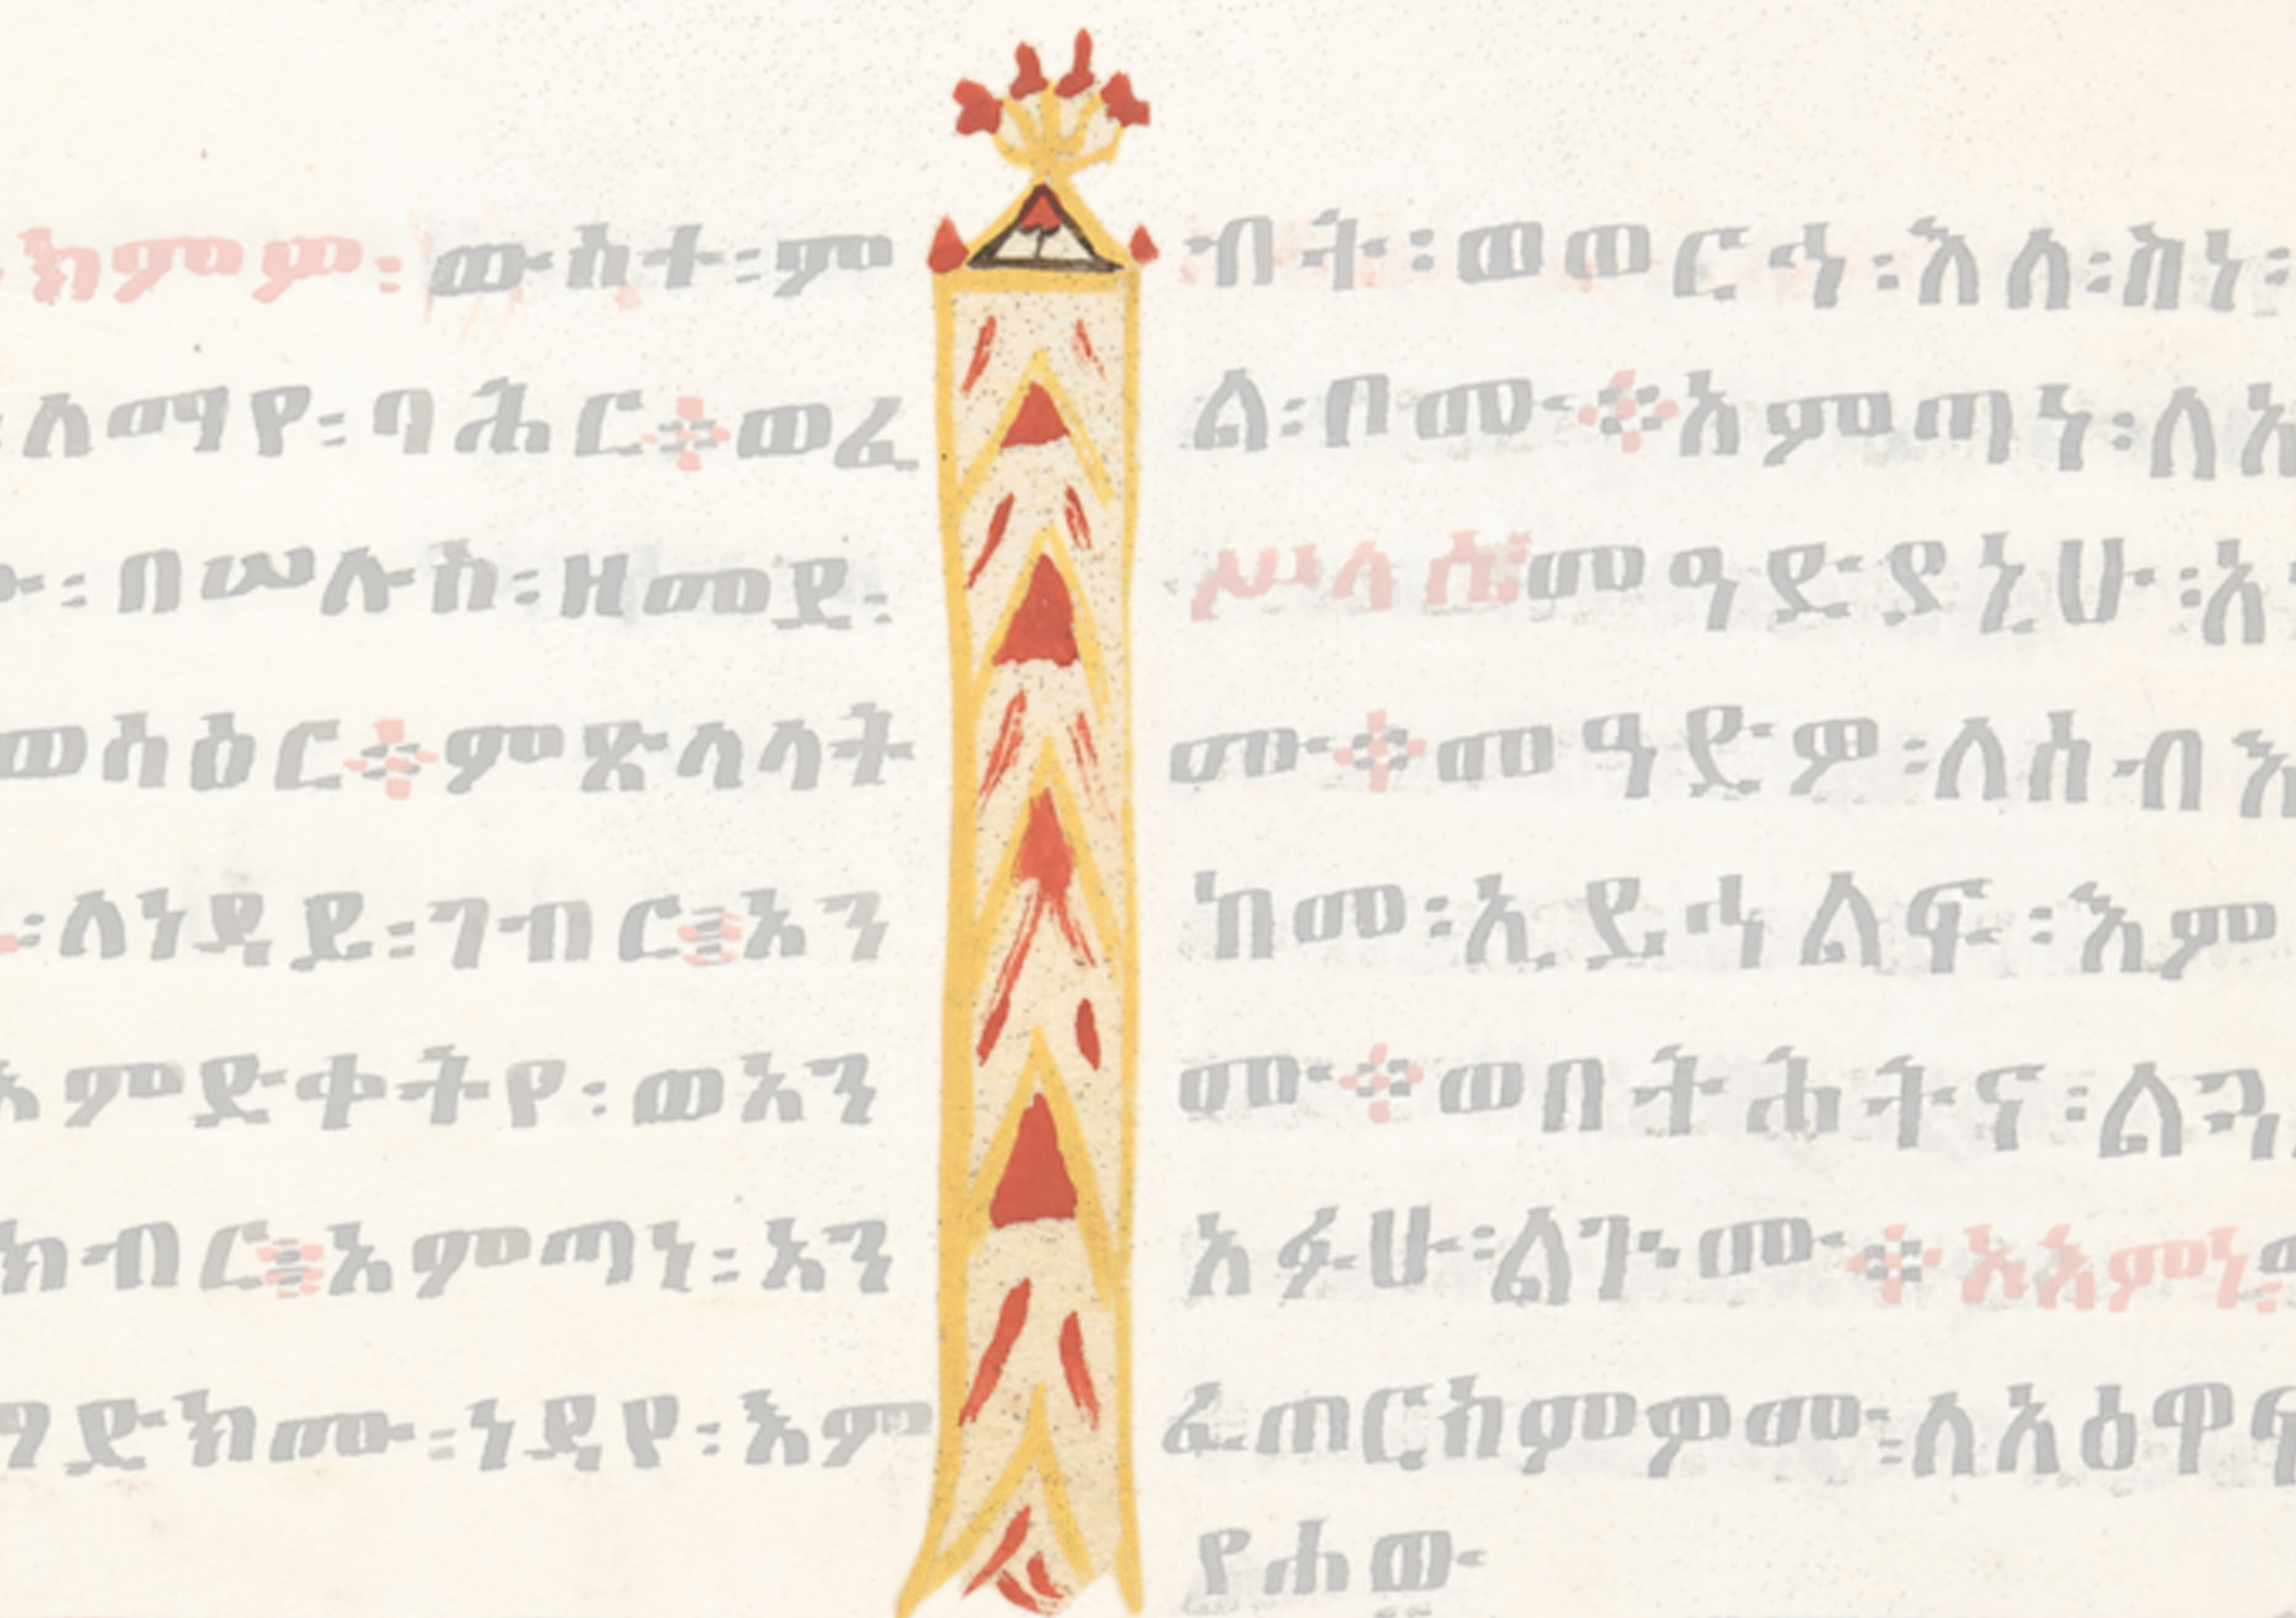 ክምሙ፡ ውስተ፡ ም
፡ለማየ፡ባሕር፨ወፈ
፡በሡሉስ፡ዘመደ፡
ወሳዕር፨ምጽላላት
፡ለነዳይ፡ገብር፨እን
እምድቀትየ፡ወእን
ክብር፨እምጣነ፡እን
ማድክሙ፡ነዳየ፡እም
ብት፡ወወርኅ፡እለ፡ስነ፡
ል፡በሙ፨አምጣነ፡ለእ
ሥላሴ፡መዓድያኒሁ፡እ
ሙ፨መዓድም፡ለሰብእ
ከመ፡ኢይኅልፍ፡እም
ሙ፨ወበትሕትና፡ልጓ
አፉሁ፡ልጉሙ፨አእምነ፡
ፈጠርከምዎሙ፡ለአዕዋፍ
የሐውሩ